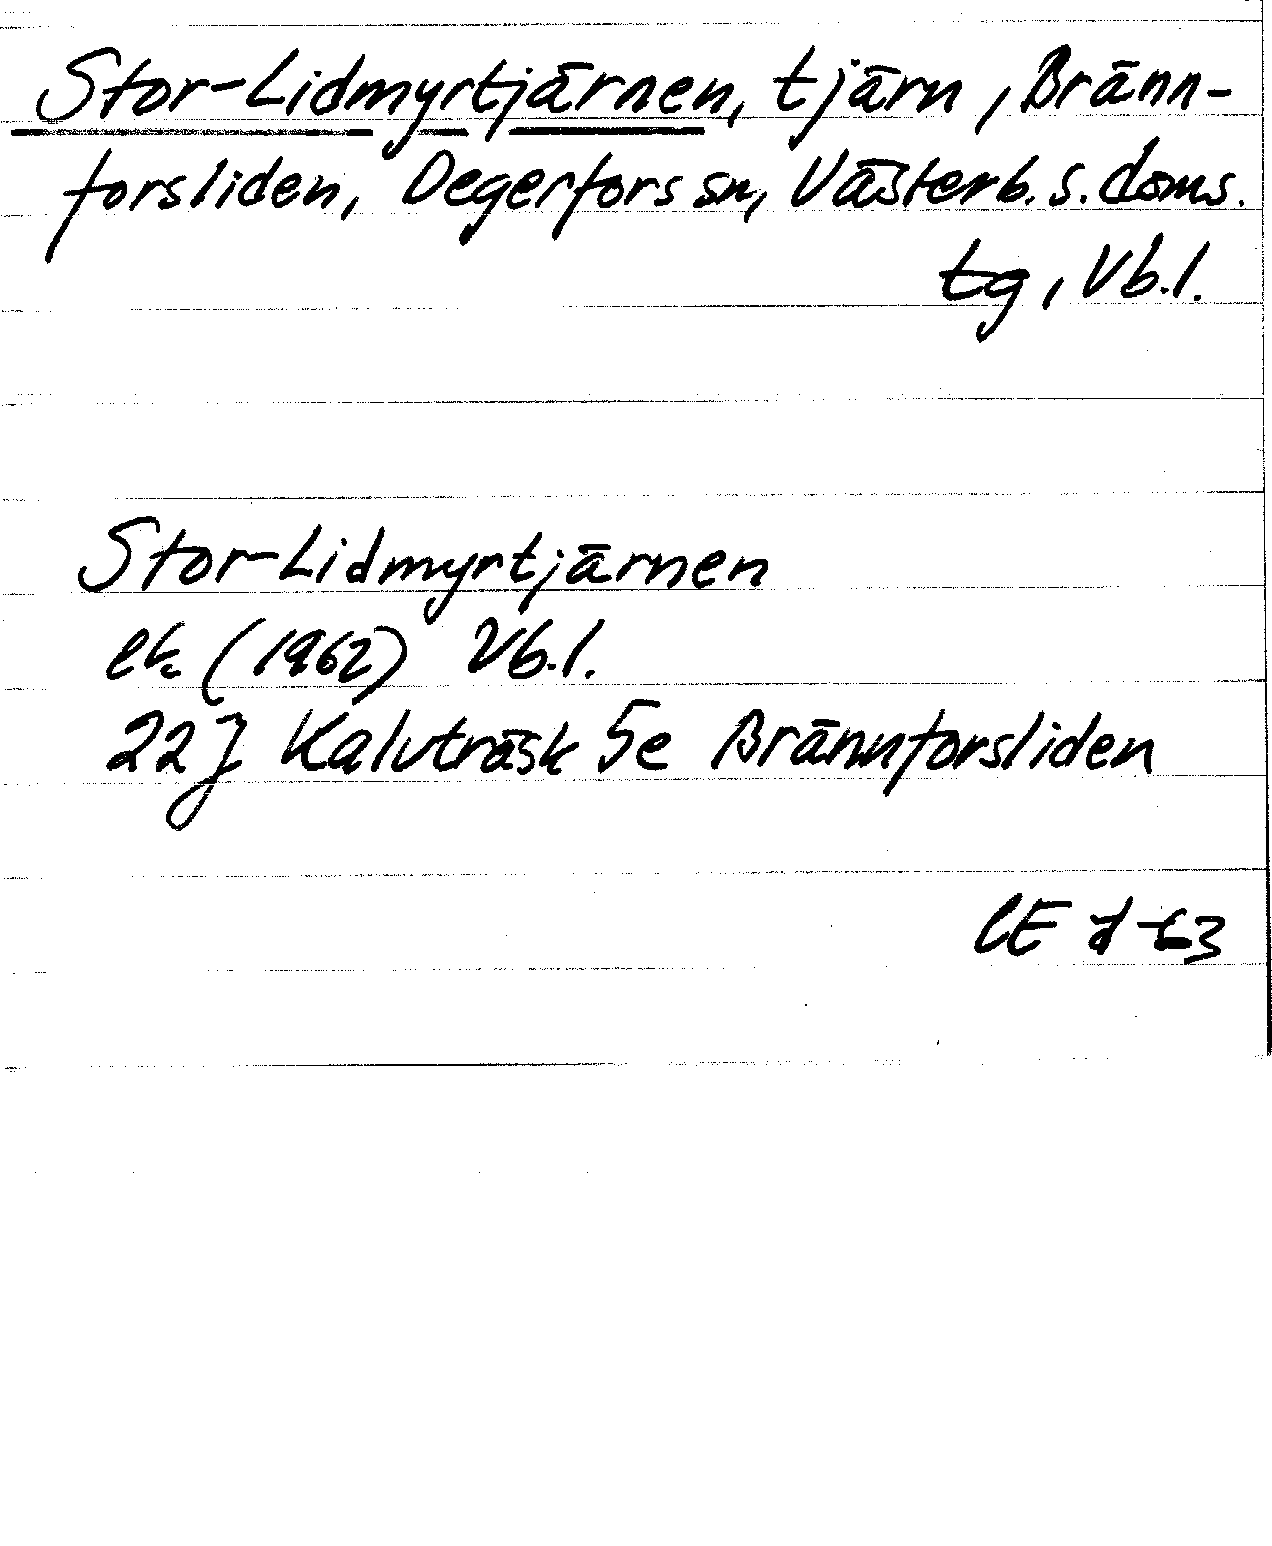 Stor-Lidmyrtjärnen, tjärn, Bränn-
forsliden, Degerfors sn, Västerb. s. doms.
tg, Vb. l.
Stor-Lidmyrtjärnen
ek (1962) Vb. l.
22J Kalvträsk 5e Brännforsliden
CE -63